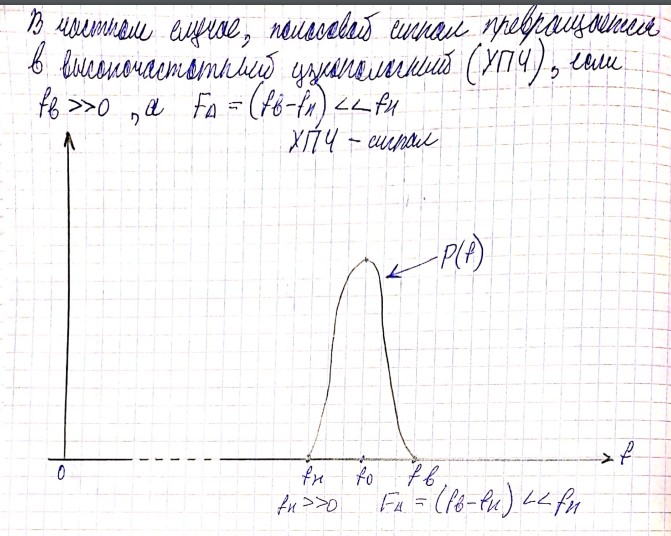 В частном случае, полосовой сигнал превращается
в высокочастотный узкополосный (УПЧ), если
fв >>0, а FΔ = (fв-fн) << fн
УПЧ - сигнал
P(f)
0 fн f0 fв f
fн >>0 FΔ = (fв-fн) << fн